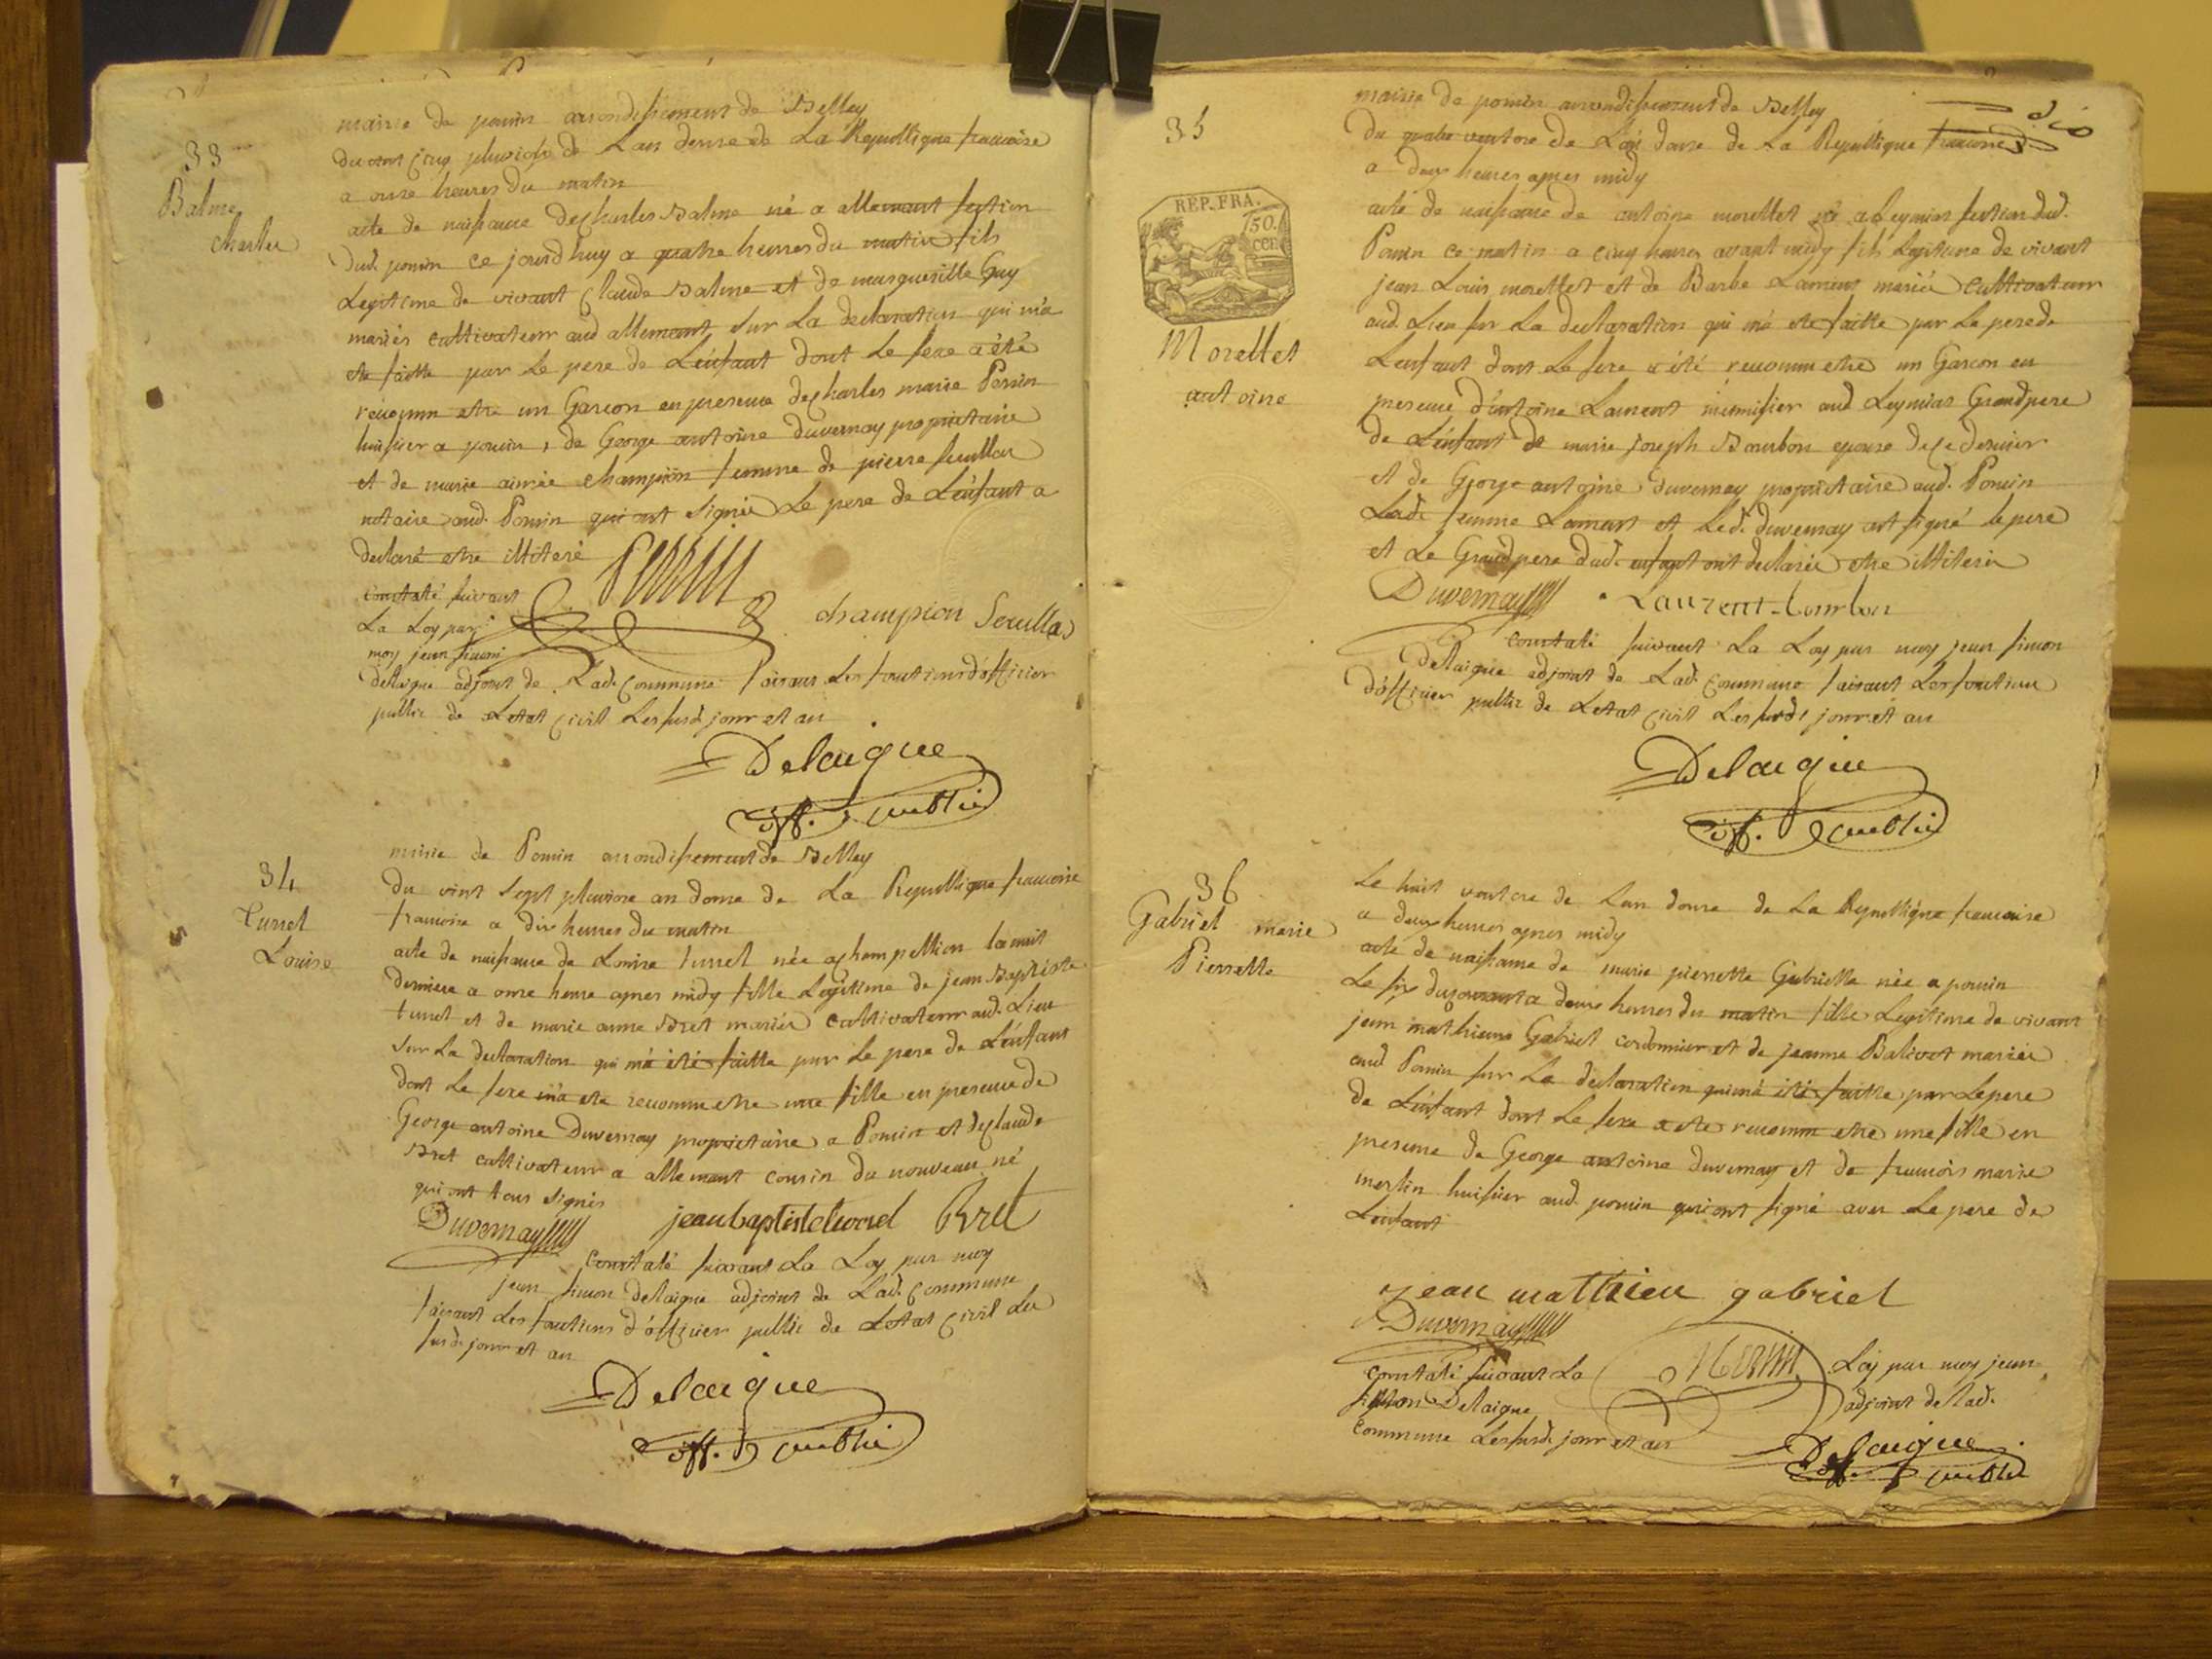 33
Balme
charles
mairie de poncin arrondissement de Belley
du vint cinq pluviose de L'an douze de La Republique francoise
a onze heures du matin
acte de naissance de charles Balme né a allemant section
dud. poncin ce jourdhuy a quatre heures du matin fils
Legitime de vivant claude Balme et de margueritte Guy
mariés cultivateur aud allemant sur La declaration qui m'a
ete faitte par Le pere de L'enfant dont Le sexe a été
reconnu etre un Garcon en presence de charles marie Perrin
huissier a poncin, de George antoine duvernay proprietaire
et de marie aimée champion femme de pierre
notaire aud. Poncin qui ont signé Le pere de L'enfant a
declaré etre illiteré
Perrin
champion
constaté suivant
La Loy par
moy jean simon
delaigue adjoint de Lad. commune faisant Les fonctions d'officier
public de L'etat civil Les susd. jour et an
Delaigue
off. public
34
turrel
Louise
mairie de Poncin arrondissement de Belley
du vint sept pluviose an douze de La Republique francoise
francoise a dix heures du matin
acte de naissance de Louise turrel née a champellion la nuit
derniere a onze heure apres midy fille Legitime de jean Baptiste
turrel et de marie anne Bret mariés cultivateur aud. Lieu
sur La declaration qui m'a été faitte par Le pere de L'enfant
dont Le sexe m'a ete reconnu etre une fille en presence de
George antoine Duvernay proprietaire a Poncin et de claude
Bret cultivateur a allemant cousin du nouveau né
qui ont tous signés
Duvernay jean baptiste turrel Bret
constaté suivant La Loy par moy
jean simon delaigue adjoint de Lad. commune
faisant Les fonctions d'officier public de L'etat civil Les
susd. jour et an
Delaigue
off. public
35
REP. FRA.
50.
CEN.
Morellet
antoine
mairie de poncin arrondissement de Belley
du quatre ventose de L'an douze de La Republique francoise
a deux heures apres midy
acte de naissance de antoine morellet né a Leymiat section dud.
Poncin ce matin a cinq heures avant midy fils Legitime de vivant
jean Louis morellet et de Barbe Laurent mariés cultivateur
aud. Lieu sur La declaration qui m'a ete faitte par Le pere de
L'enfant dont Le sexe a été reconnu etre un Garcon en
presence d'antoine Laurent menuisier aud Leymiat Grandpere
de L'enfant de marie joseph Bourbon epouse de ce dernier
et de George antoine duvernay proprietaire aud. Poncin
Lad. femme Laurent et Led. duvernay ont signé le pere
et Le Grandpere dud. enfant ont declarés etre illiterés
Duvernay Laurent
constaté suivant La Loy par moy jean simon
delaigue adjoint de Lad. commune faisant Les fonctions
d'officier public de L'etat civil Les susd. jour et an
Delaigue
off. public
36
Gabriel marie
Pierrette
Le huit ventose de L'an douze de La Republique francoise
a deux heures apres midy
acte de naissance de marie pierrette Gabrielle née a poncin
Le six du courant a deux heures du matin fille Legitime de vivant
jean mathieux Gabriel cordonnier et de jeanne Balivet mariés
aud Poncin sur La declaration qui m'a été faitte par Le pere
de L'enfant dont Le sexe a ete reconnu etre une fille en
presence de George antoine duvernay et de francois marie
merlin huissier aud. poncin qui ont signé avec Le pere de
L'enfant
jean mathieu gabriel
Duvernay
Merlin
constaté suivant La Loy par moy jean
simon Delaigue adjoint de Lad.
commune Les susd. jour et an
Delaigue
off. public